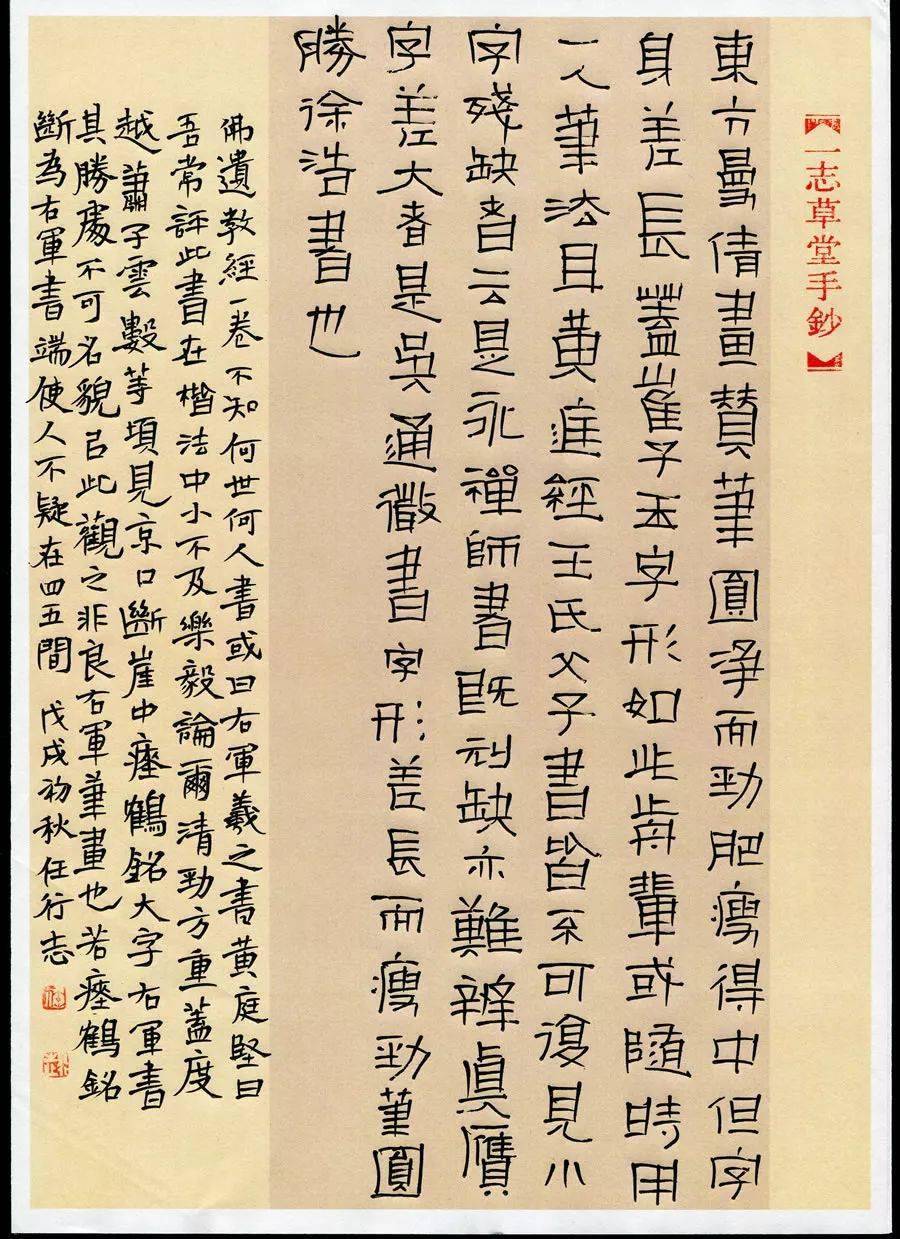 【一志草堂手鈔】
東方曼倩畫贊筆圓淨而勁肥瘦得中但字
身差長蓋崔子玉字形如此前輩或隨時用
一人筆法且黄庭經王氏父子書皆不可復見小
字殘缺者云是永禪師書既刓缺亦難辨真贗
字差大者是吳通微書字形差長而瘦勁筆圓
勝徐浩書也
佛遺教經一卷不知何世何人書或曰右軍羲之書黄庭堅曰
吾常評此書在楷法中小不及樂毅論爾清勁方重蓋度
越蕭子雲數等頃見京口斷崖中瘞鶴銘大字右軍書
其勝處不可名貌㠯此觀之非良右軍筆畫也若瘞鶴銘
斷為右軍書端使人不疑在四五間 戊戌初秋任行志